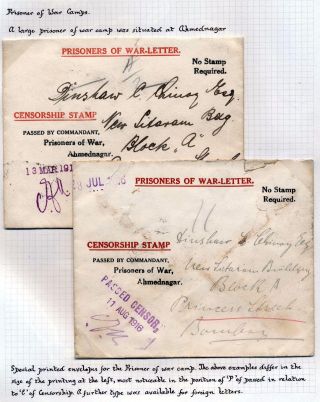 Prisoner of War Camps.
A large prisoner of war camp was situated at Ahmednagar
PRISONERS OF WAR-LETTER.
No Stamp
Required.
Dinshaw C. Chinoy Esq
CENSORSHIP STAMP
New Sitaram Bdg
PASSED BY COMMANDANT,
Prisoners of War,
Ahmednagar.
Block "A"
13 MAR 191
JUL 1916
PRISONERS OF WAR-LETTER.
No Stamp
Required.
CENSORSHIP STAMP
Dinshaw Chinoy Esq
PASSED BY COMMANDANT,
Prisoners of War,
Ahmednagar.
New Sitaram Building
Block A
Princess Street
Bombay
PASSED CENSOR,
11 AUG 1916
Special printed envelopes for the Prisoner of war camp. The above examples differ in the
size of the printing at the left, most noticeable in the position of 'P' of passed in relation
to 'C' of Censorship. A further type was available for foreign letters.